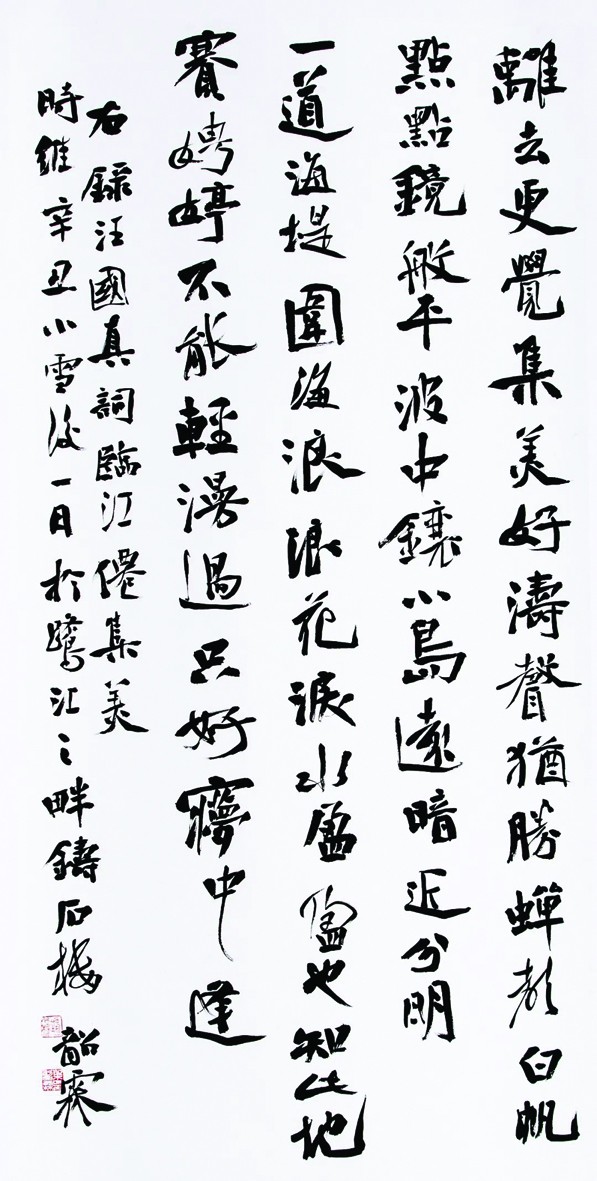 離去更覺集美好濤聲猶勝蟬白帆
點點鏡般平波中鑲小島遠暗近分明
一道海堤圍海浪浪花淚水盈盈也知此地
賽娉婷不能輕漫過只好寢中逢
右錄汪國真詞臨江僊集美
時維辛丑小雪後一日於鷺江之畔鑄石樓韶霖